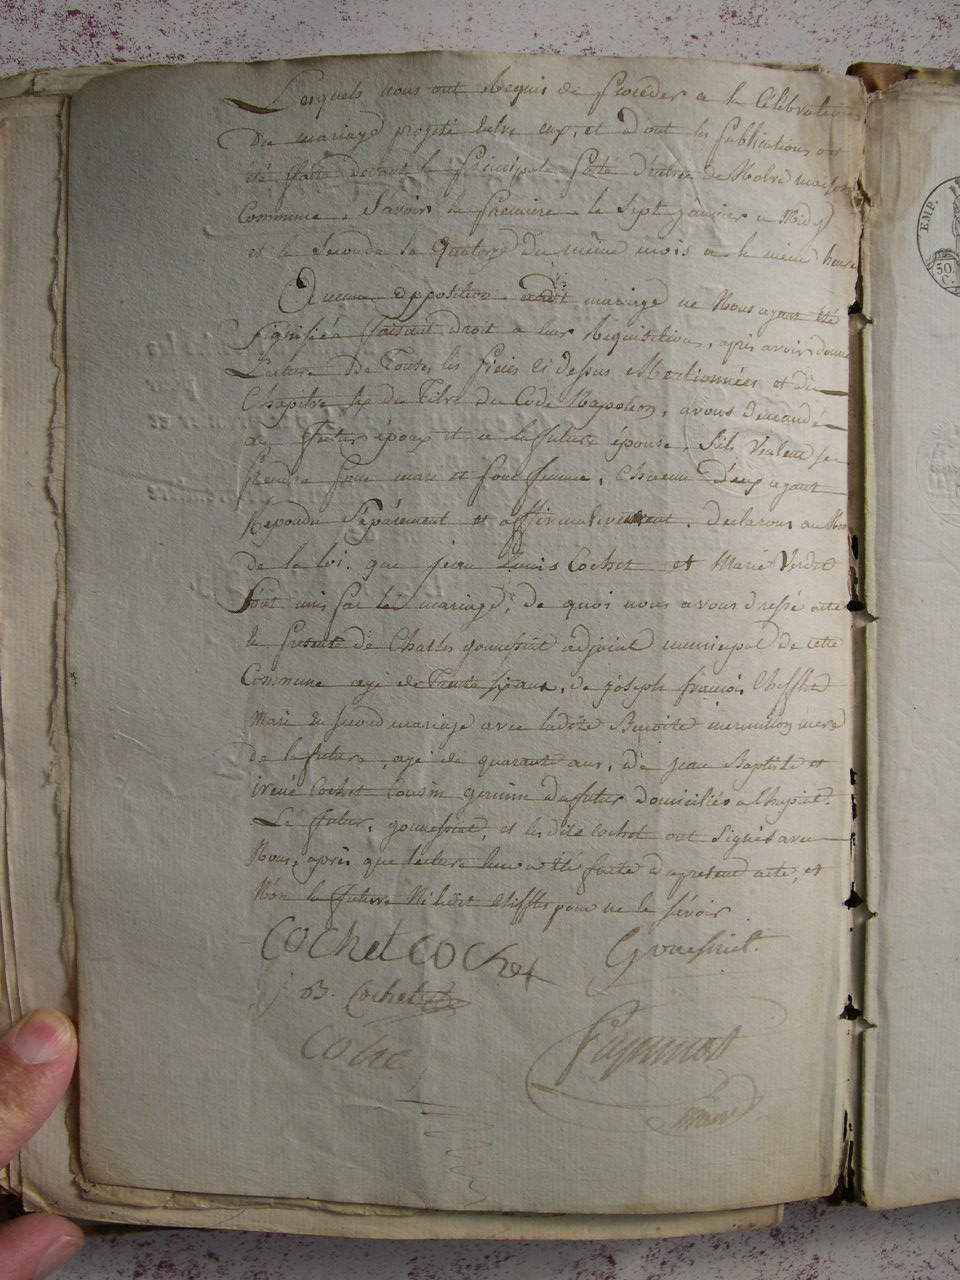 Lesquels nous ont Requis de Proceder a la Célébration
Du mariage projeté Entre eux, et dont les Publications ont
été faite devant la Principale Porte d'entrée de Notre maison
Commune, Savoir la Premiere le Sept janvier a Midy
et la Seconde le Quatorze du même mois a la même heure
Aucune opposition audit mariage ne Nous ayant été
Signifiée faisant droit a leur Requisition, après avoir donné
Lecture de Toutes les Pieces Ci dessus Mentionnées et du
Chapitre six du Titre du Code Napoleon, avons demandé
au futur époux et a la future épouse, S'ils Veulent se
Prendre Pour mari et Pour femme, Chacun D'eux ayant
Repondu Séparément et affirmativement, declarons au Nom
de la loi, que jean Louis Cochet et Marie Verdet
Sont unis Par le mariage, de quoi nous avons dressé acte
En Presence de Charles gouessiat adjoint municipal de cette
Commune agé de Trente six ans, de joseph francois Chifflet
Mari En second mariage avec ladite Benoite mere
de la future, agé de quarante ans, de jean Baptiste et
irené Cochet Cousin germain du futur domiciliés a
Le futur, gouessiat, et lesdits Cochet ont Signés avec
Nous, après que lecture leur a été faite du present acte, et
Non la future Ni ledit Chifflet pour ne le Sçavoir
COCHET COCHET Gouessiat
j B. Cochet
maire
EMP.
50.
C.